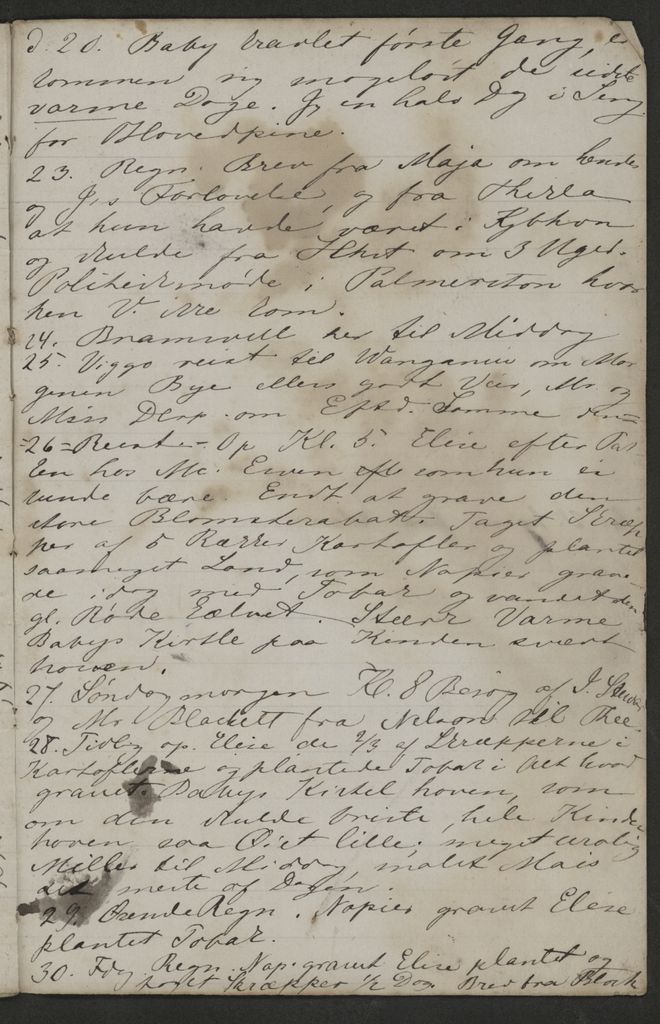 d. 20. Baby kravlet første Gang, er
kommen sig mageløst de sidste
varme Dage. Jg en halv Dg i Seng
for Hovedpine.
23. Regn. Brev fra Maja om hendes
og J.s Forlovelse, og fra Thekla
at hun havde været i Kjbhvn
og skulde fra Skst om 3 Uger.
Politiskmøde i Palmerston hvor
hen V. ikke kom.
24. Bramwell her til Middag
25. Viggo reist til Wanganui om Mor
genen Bye ellers godt Veir, Mr. og
Miss om Eftd. Samme
=26= Op Kl. 5. Elise efter
ten hos Mc. Ewen som hun ei
kunde bære. Endt at grave den
store Blomsterabat. Taget Skræp
per af 5 Rækker Kartofler og plantet
saameget Land, som Napier grave
de idag med Tobak og vandet den
gl. Røde Kalvet. Stærk Varme
Babys Kirtle paa Kinden svært
hoven.
27. Søndag morgen Kl. 8 Besøg af J.
og Mr. Blackett fra Nelson til Thee.
28. Tidlig op. Elise de 2/3 af Skræpperne i
Kartoflerne og plantede Tobak i Alt hvad
gravet. Babys Kirtel hoven, som
om den skulde briste, hele Kinden
hoven saa Øiet lille, meget urolig
Miller til Middag, malet Mais
det meste af Dagen.
29. Øsende Regn. Napier gravet Elise
plantet Tobak.
30. Fdg Regn. Nap. gravet Elise plantet og
Skræpper 1/2 Dag Brev fra Block